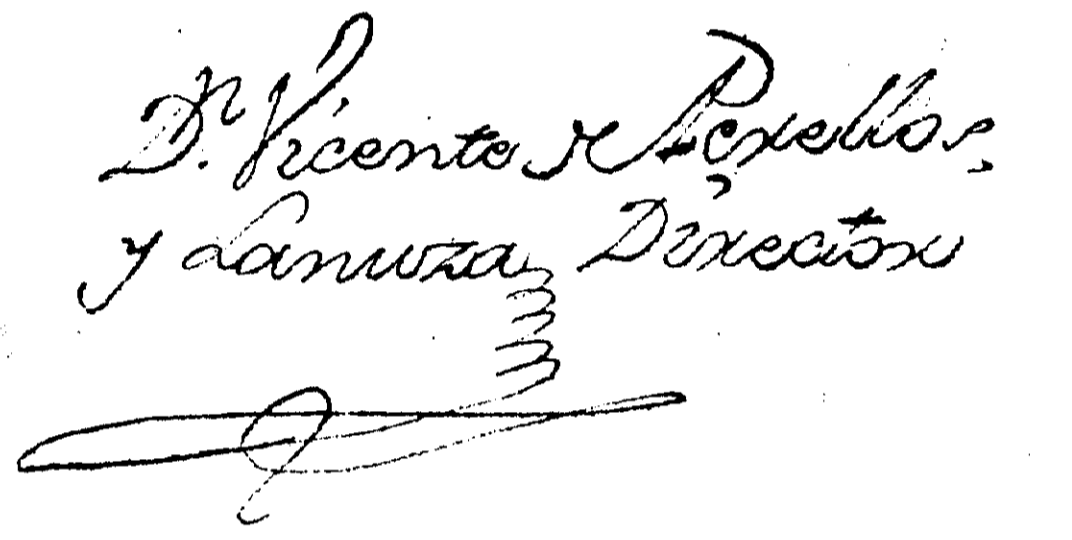 Dn. Vicente de Perellos,
y Lanuza Director